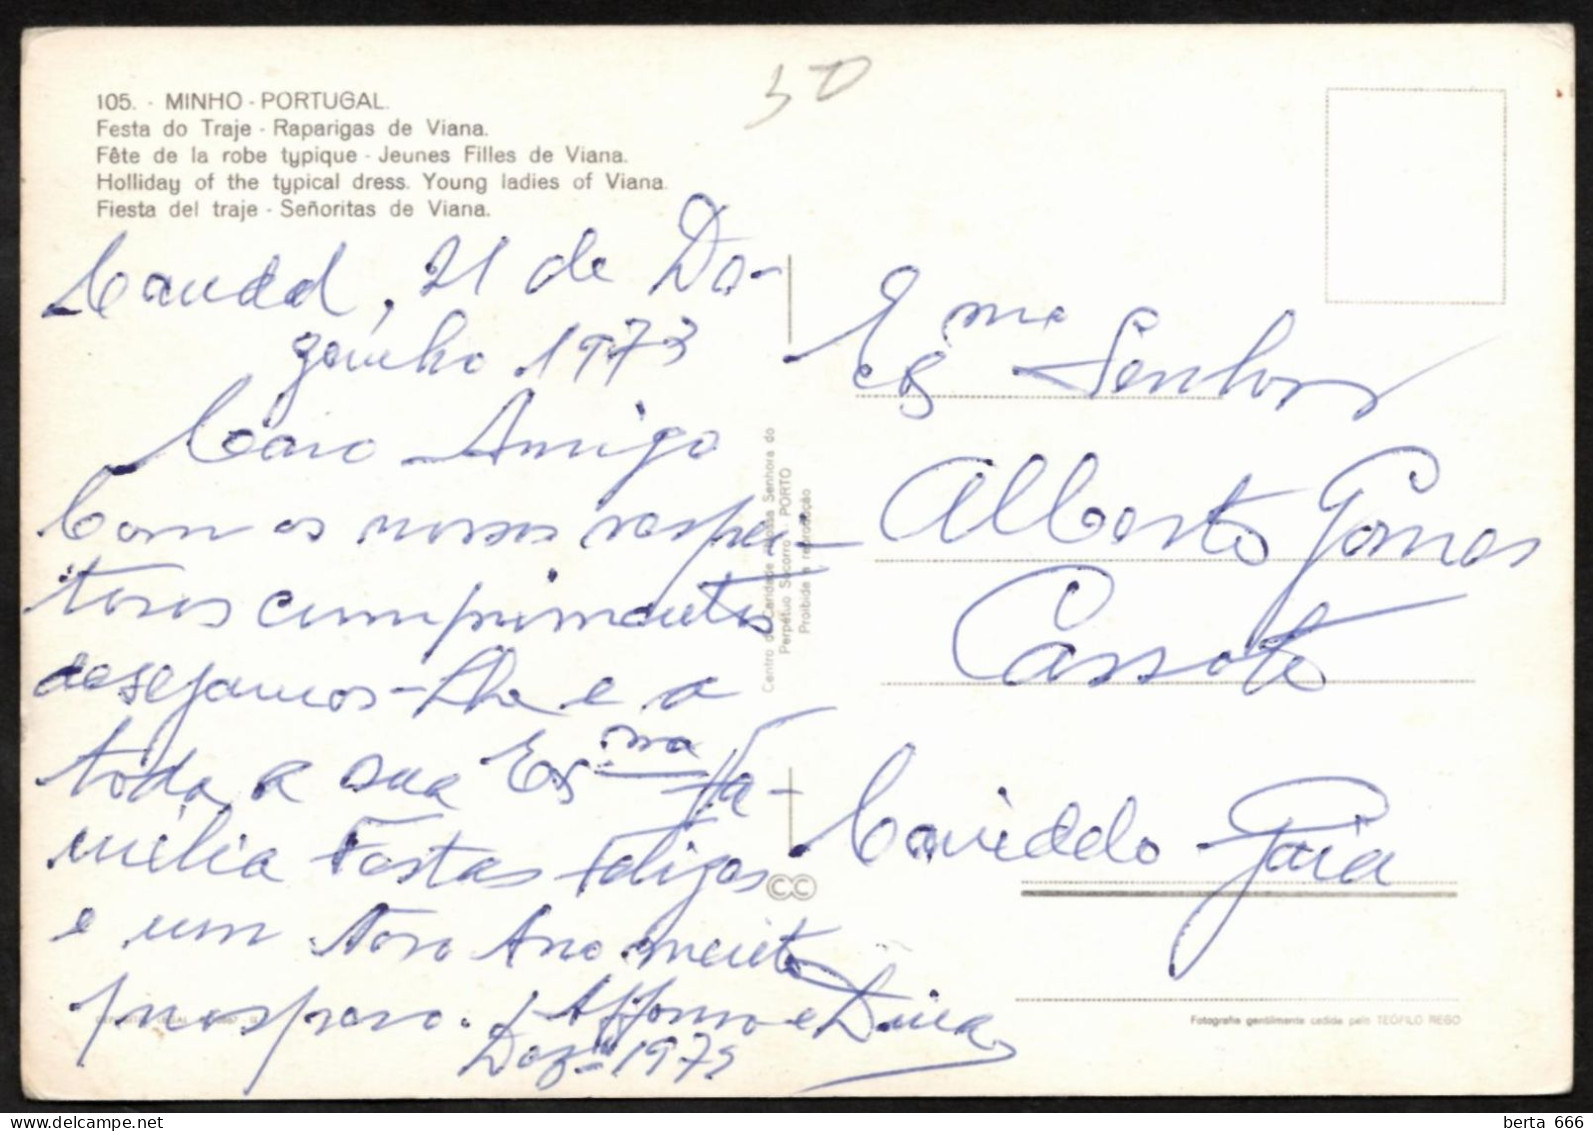 105. - MINHO - PORTUGAL.
Festa do Traje - Raparigas de Viana.
Fête de la robe typique - Jeunes Filles de Viana.
Holliday of the typical dress. Young ladies of Viana.
Fiesta del traje - Señoritas de Viana.
50
21 de De-
zembro 1973
Caro Amigo
Com os nossos respei-
tosos cumprimentos
desejamos-lhe e a
toda a sua Exma Fa-
mília Festas Felizes
e um Novo Ano muito
prospero. Affonso e
Dezº 1973
Centro de Caridade "Nossa Senhora do
Perpétuo Socorro" - PORTO
Proibida a reprodução
CC
Exmo Senhor
Alberto Gomes
Canidelo Gaia
Fotografia gentilmente cedida pelo TEÓFILO REGO
berta 666